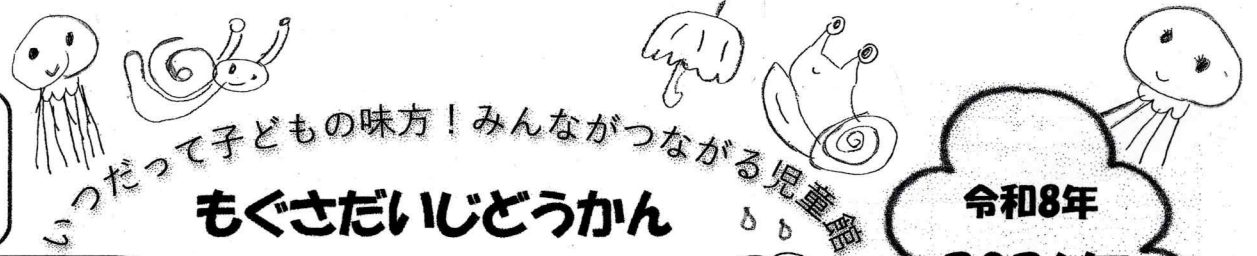 いつだって子どもの味方！みんながつながる児童館
もぐさだいじどうかん
令和8年